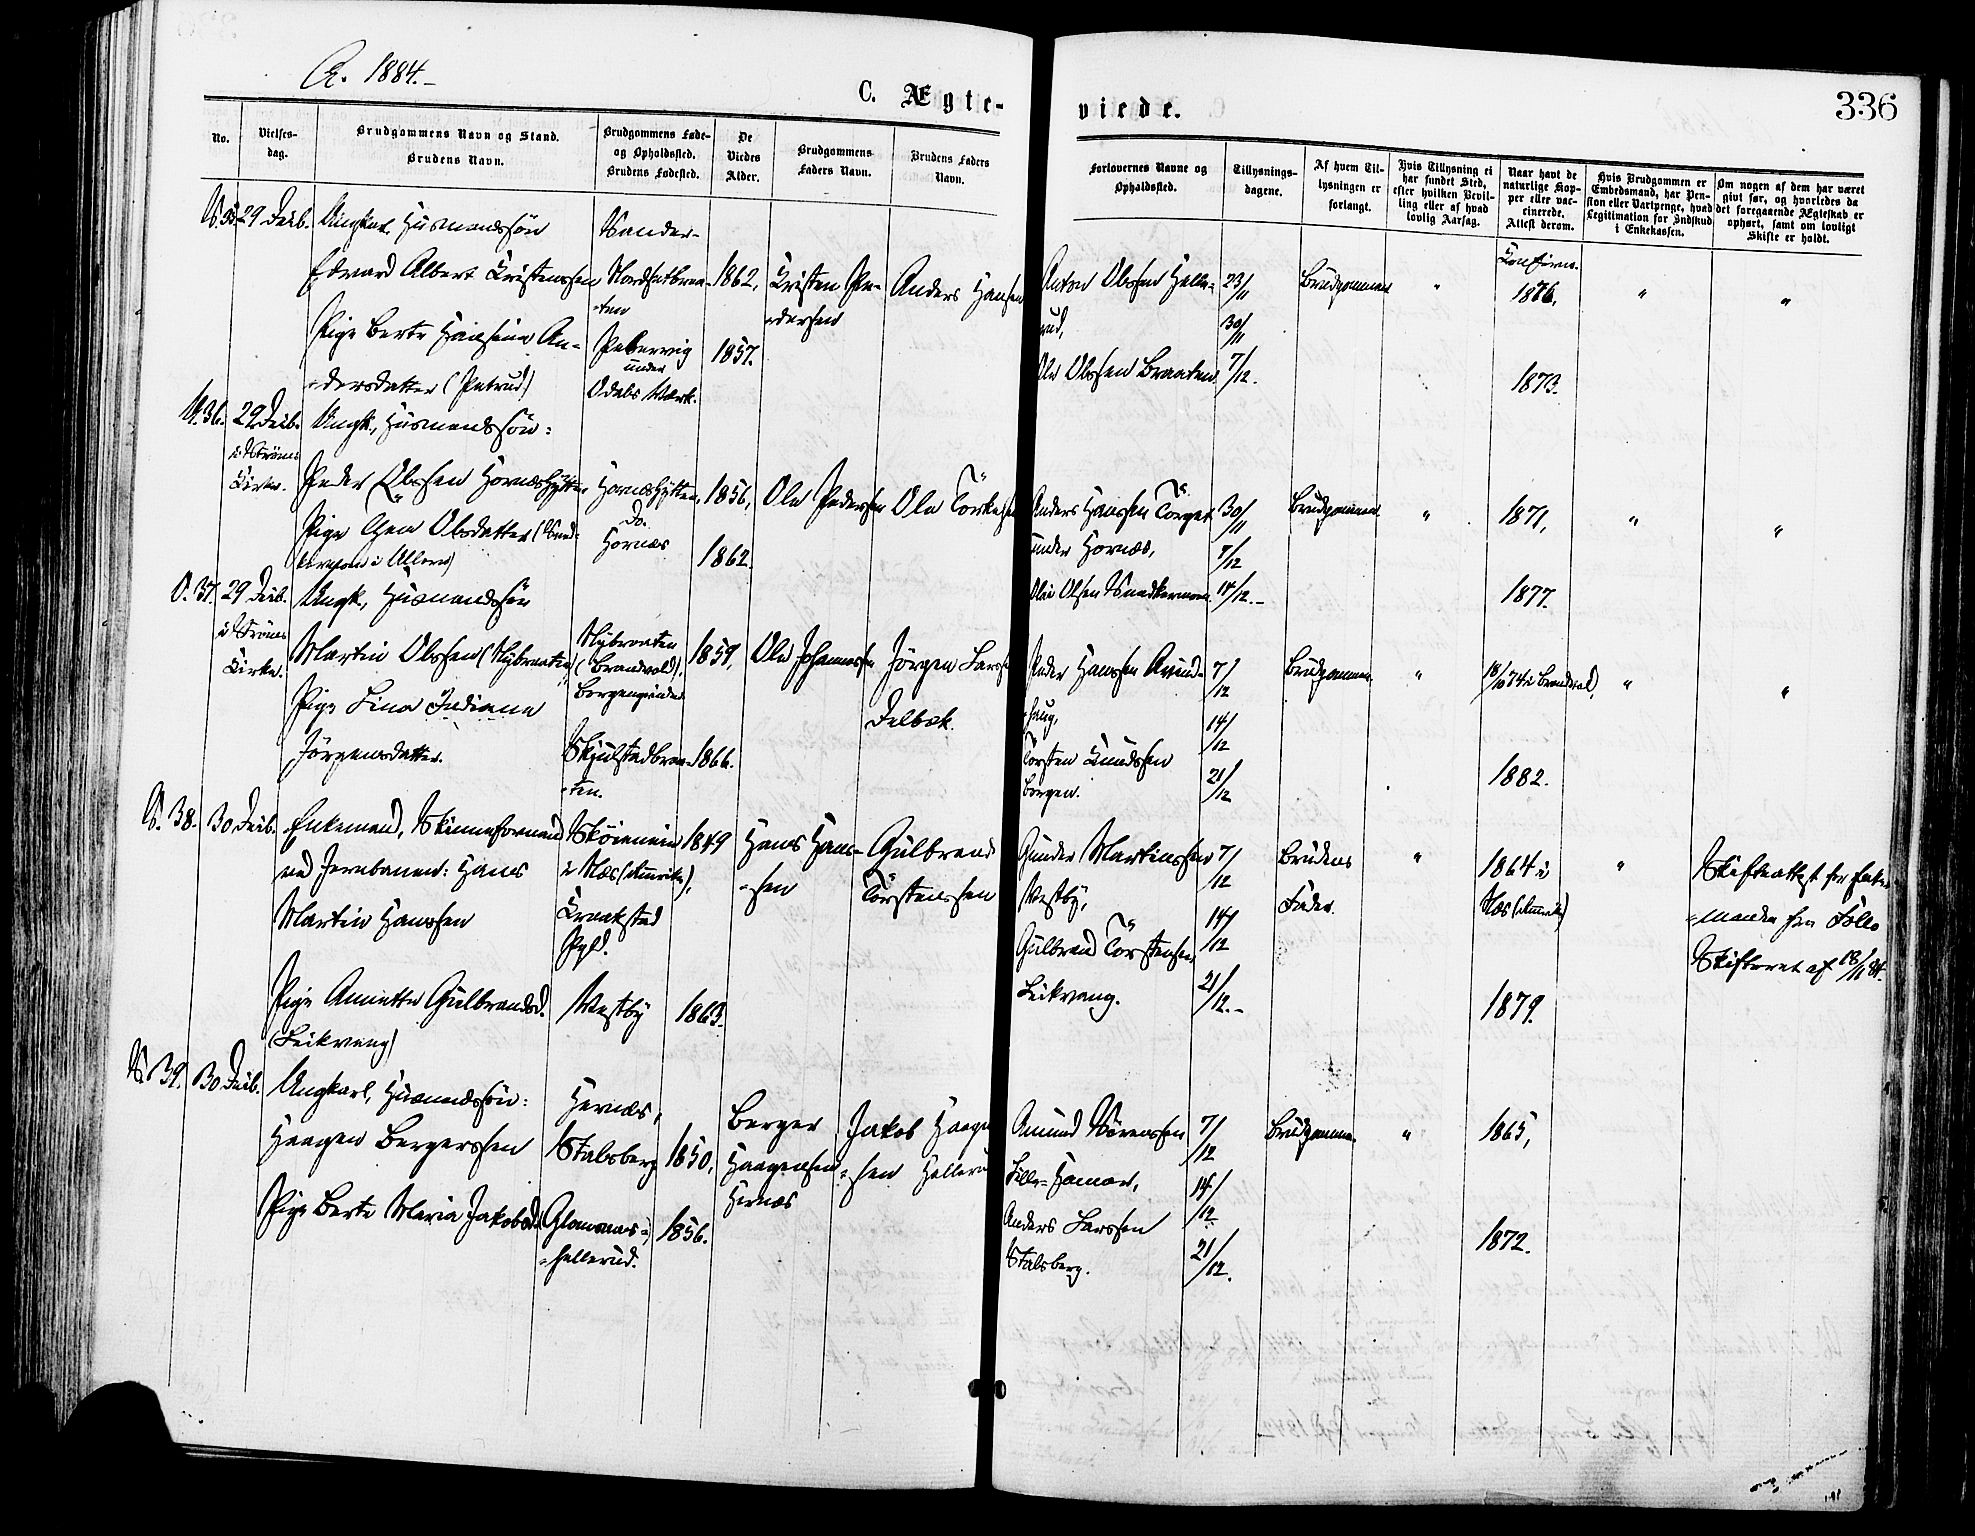 A. 1884.-
C. Ægte-
viede.
336
No.
Vielses-
dag.
Brudgommens Navn og Stand.
Brudens Navn.
Brudgommens Føde-
og Opholdssted.
Brudens Fødested.
De
Viedes
Alder.
Brudgommens
Faders Navn.
Brudens Faders
Navn.
Forlovernes Navne og
Opholdssted.
Tillysnings-
dagene.
Af hvem Til-
lysningen er
forlangt.
Hvis Tillysning ei
har fundet Sted,
efter hvilken Bevil-
ling eller af hvad
lovlig Aarsag.
Naar havt de
naturlige Kop-
per eller vac-
cinerede.
Attest derom.
Hvis Brudgommen er
Embedsmand, har Pen-
sion eller Vartpenge, hvad
Legitimation for Indskud
i Enkekassen.
Om nogen af dem har været
gift før, og hvorledes da
det foregaaende Ægteskab er
ophørt, samt om lovligt
Skifte er holdt.
29 Decb.
Ungkarl, Husmandssøn
Edvard Albert Kristenssen
Pige Berte Hansine An-
dersdatter
Sander-
Nordsetbraa-
ten
under
Odals Værk.
1862,
1857.
Kristen Pe-
dersen
Anders Hansen
Anton Olssen Helle-
rud,
Ole Olssen Braaten
23/11
30/11
7/12.
Brudgommen
"
Konfirm.
1876.
1873.
"
"
N. 36.
29 Decb.
i Strøms
Kirke.
Ungk., Husmandssøn:
Peder Olssen Hornæshytten
Pige Olsdatter
Hornæshytten,
Do.
Hornæs
1856,
1862.
Ole Pedersen
Ole
Anders Hanssen
under Hornæs,
30/11
7/12
14/12.-
Brudgommen
"
1871,
1877.
"
"
37.
29 Decb.
i Strøms
Kirke.
Ungk., Husmandssøn
Martin Olssen (Nybraaten)
Pige Lina Indiana
Jørgensdatter.
Nybraaten
(Brandvold),
Skjulstadbraa-
ten.
1859,
1866.
Ole Johannessen
Jørgen Larssen
Delbæk.
Peder Hanssen
haug,
Torsten Knudssen
Borgen.
7/12
14/12
21/12
Brudgommen
"
74 i Brandvold,
1882.
"
"
38.
30 Decb.
Enkemand, Skinneformand
ved Jernbanen: Hans
Martin Hanssen
Pige Aminette Gulbrandsd.
(Leikvang)
i Næs (Romerike),
Kraakstad
Pgld.
Vestby
1849
1863.
Hans Hans-
sen
Gulbrand
Torstenssen
Gunder Martinssen
Vestby,
Gulbrand Torstensen
Leikvang.
7/12
14/12
21/12.-
Brudens
Fader.
"
1864 i
Næs (Romerike)
1879.
"
Skifteattest for Enke-
manden fra Follo
Skifteret af 18/11 84.
39.
30 Decb.
Ungkarl, Husmandssøn:
Haagen Bergerssen
Pige Berte Maria Jakobsd.
Hernæs,
Stalsberg
Glomnæs i
Hellerud.
1850,
1856.
Berger
Haagenssen
Hernæs
Jakob Haagen-
sen Hellerud
Amund Sørenssen
Lille-Hamar,
Anders Larssen
Stalsberg.
7/12
14/12
21/12.
Brudgommen
"
1865,
1872.